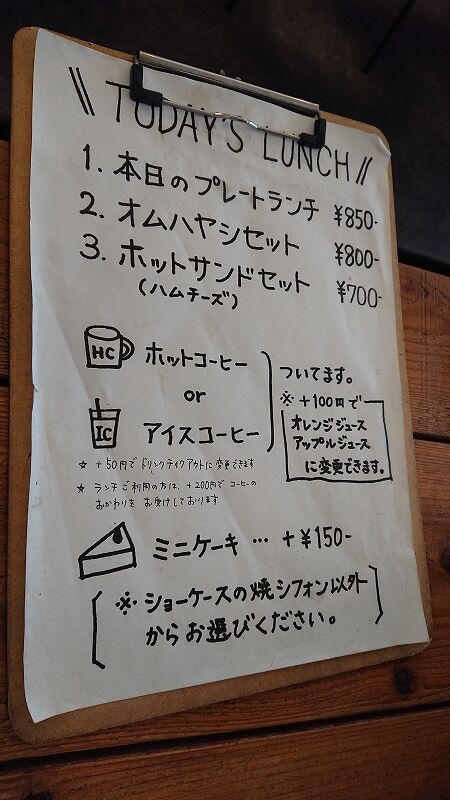 \\ TODAY'S LUNCH //
1. 本日のプレートランチ ¥850-
2. オムハヤシセット ¥800-
3. ホットサンドセット ¥700-
(ハムチーズ)
HC ホットコーヒー
or
IC アイスコーヒー
ついてます。
※ +100円で
オレンジジュース
アップルジュース
に変更できます。
☆ +50円で ドリンクテイクアウトに変更できます
★ ランチご利用の方は、+200円で コーヒーの
おかわりを お受けしております
ミニケーキ … +¥150-
※ ショーケースの焼シフォン以外
からお選びください。